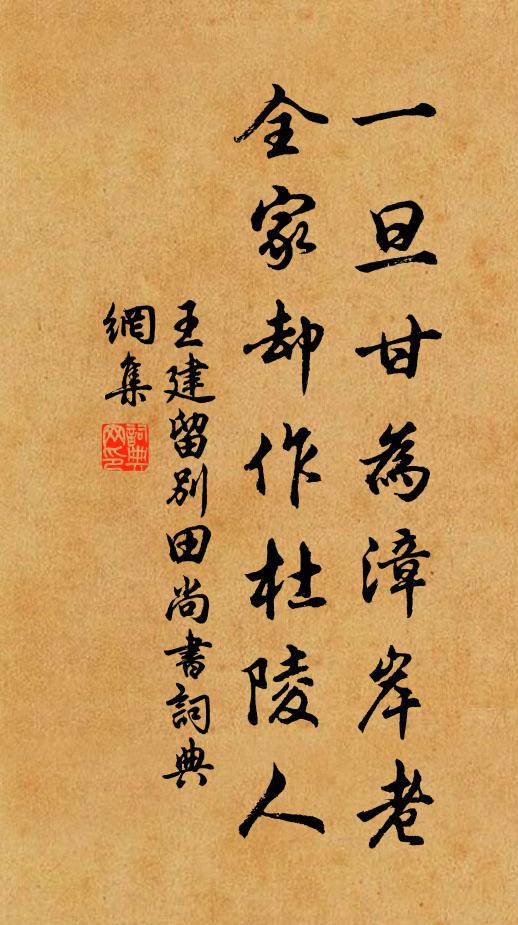 一旦甘為漳岸老
全家却作杜陵人
王建留別田尚書詞典
網集
詞典
网印